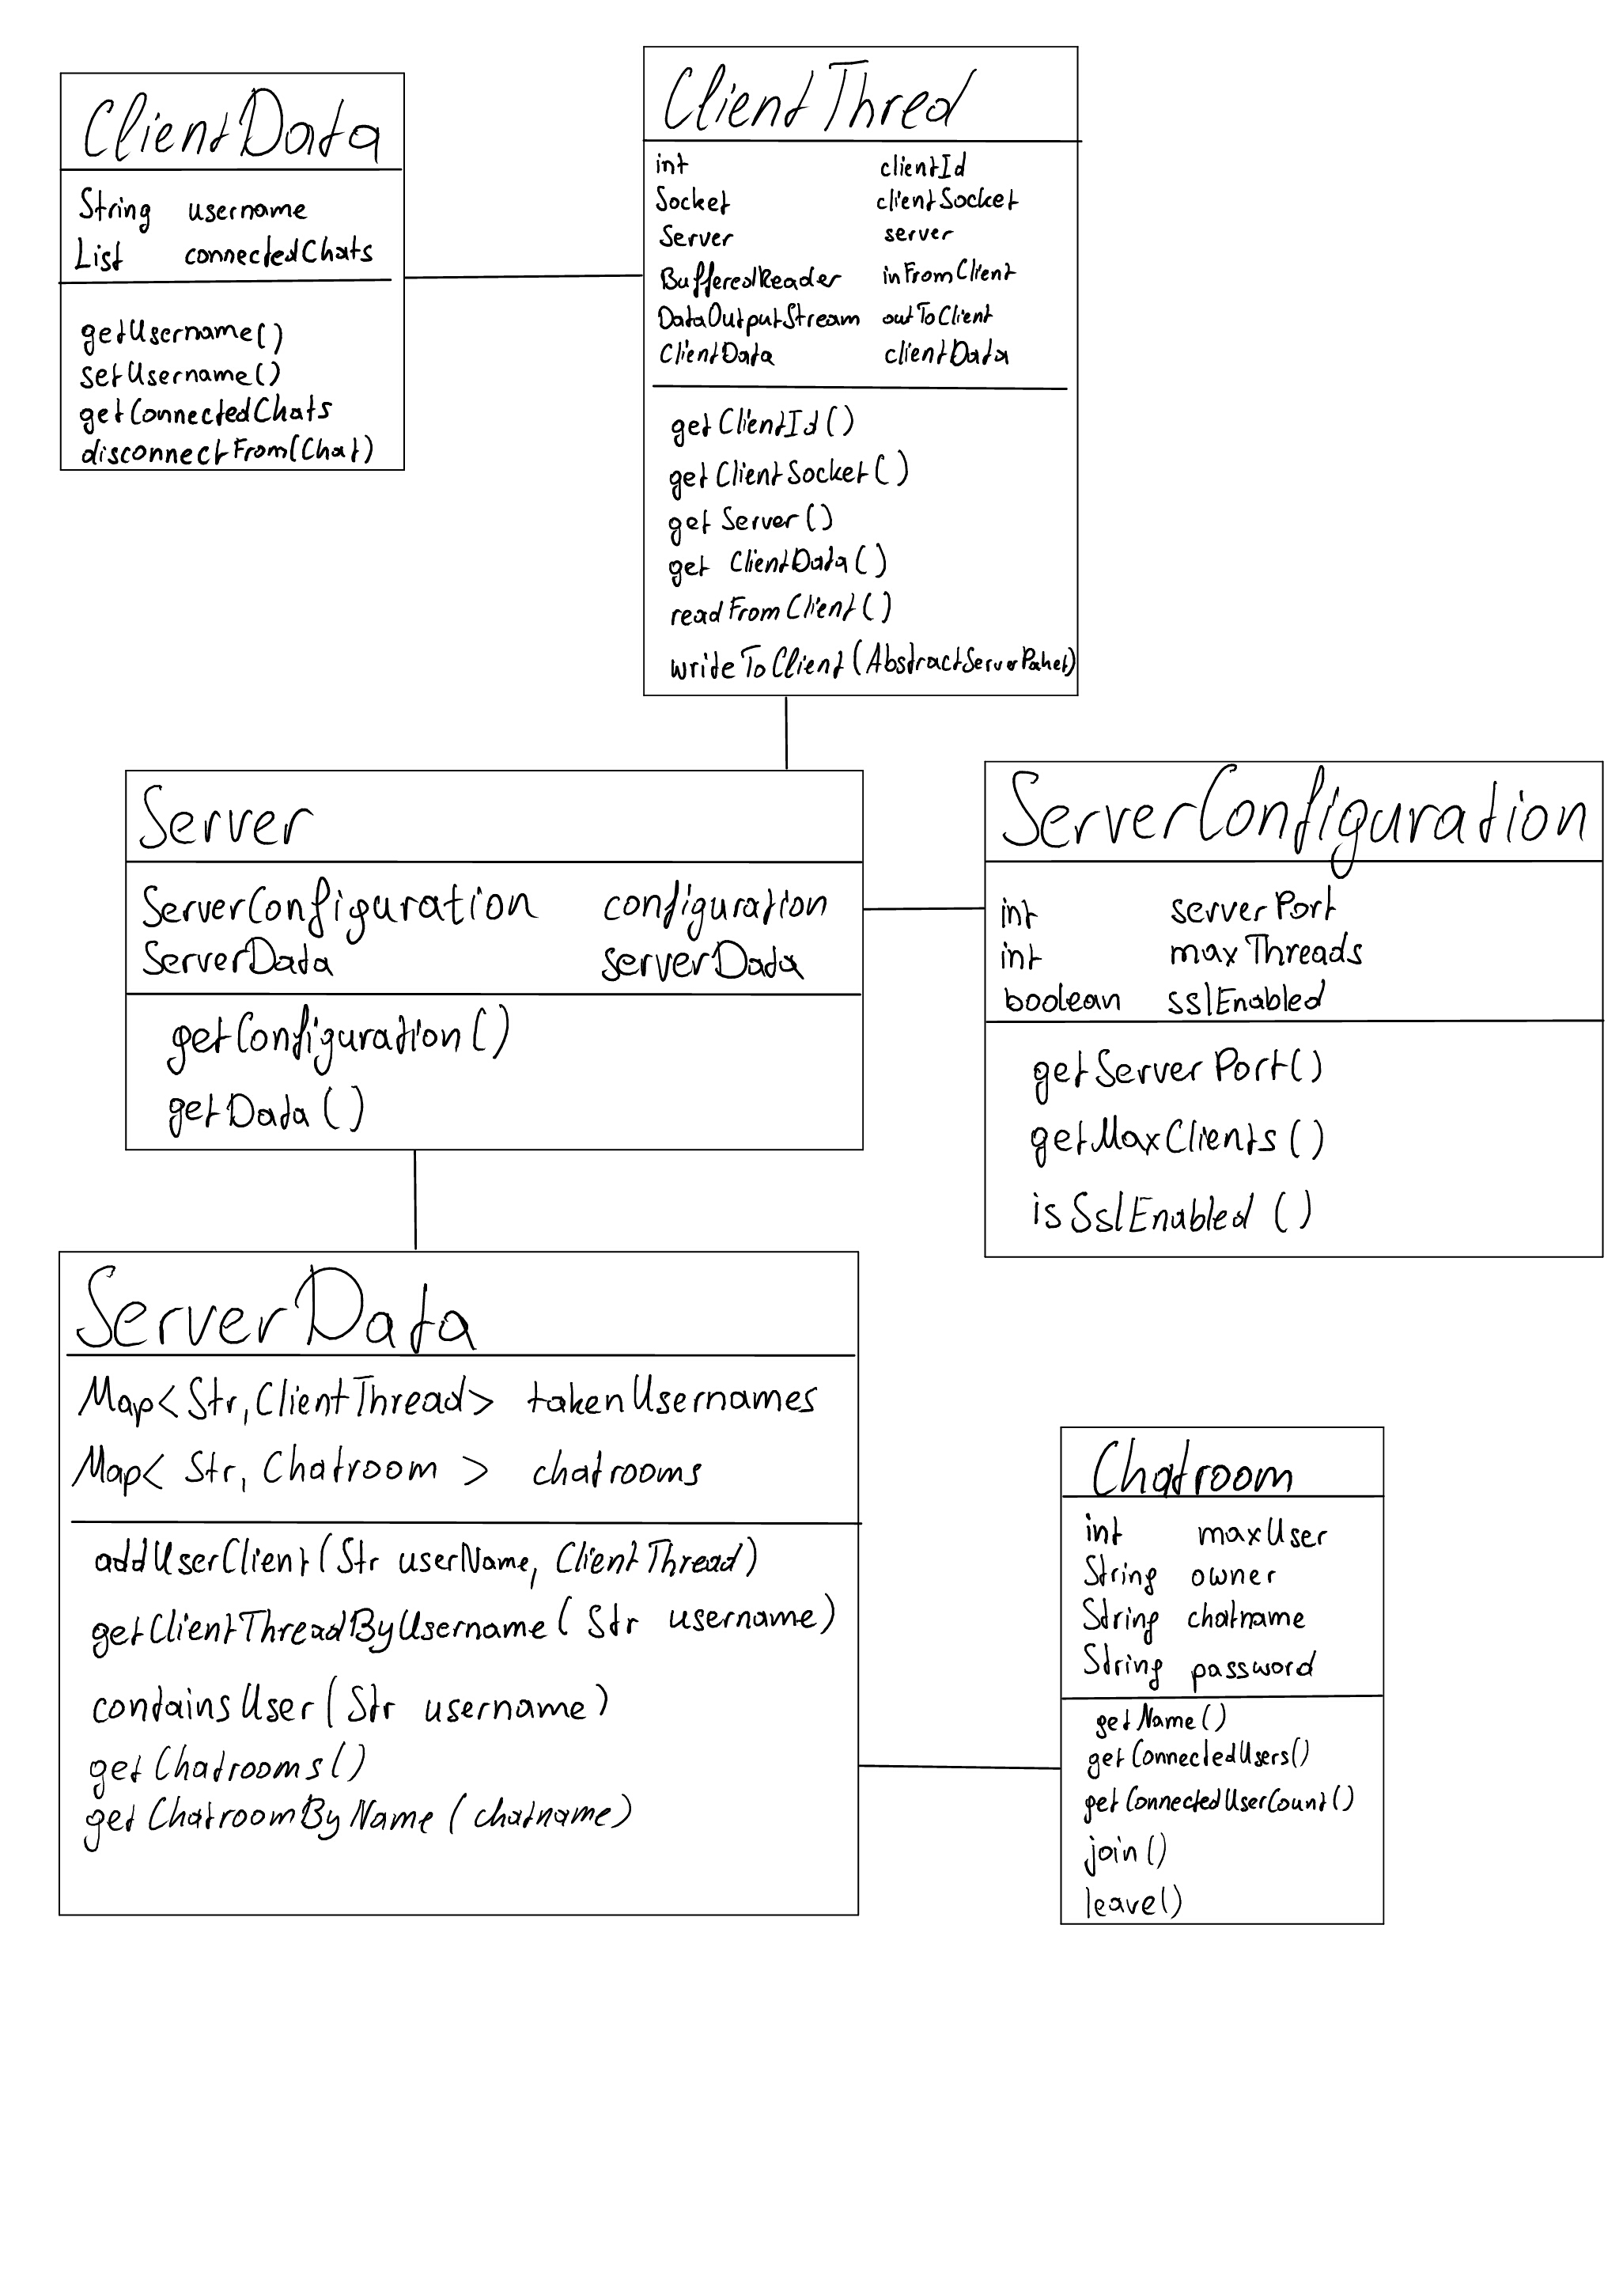 ClientData
String username
List connectedChats
getUsername()
setUsername()
getConnectedChats
disconnectFrom(Chat)
ClientThred
int clientId
Socket clientSocket
Server server
BufferedReader inFromClient
DataOutputStream outToClient
ClientData clientData
getClientId()
getClientSocket()
getServer()
get ClientData()
readFromClient()
writeToClient(AbstractServerPaket)
Server
ServerConfiguration configuration
ServerData serverData
getConfiguration()
getData()
ServerConfiguration
int serverPort
int maxThreads
boolean sslEnabled
getServerPort()
getMaxClients()
isSslEnabled ()
ServerData
Map<Str,ClientThread> takenUsernames
Map< Str, Chatroom > chatrooms
addUserClient(Str userName, ClientThread)
getClientThreadByUsername(Str username)
containsUser(Str username)
getChatrooms()
getChatroomByName(chatname)
Chatroom
int maxUser
String owner
String chatname
String password
getName()
getConnectedUsers()
getConnectedUserCount()
join()
leave()